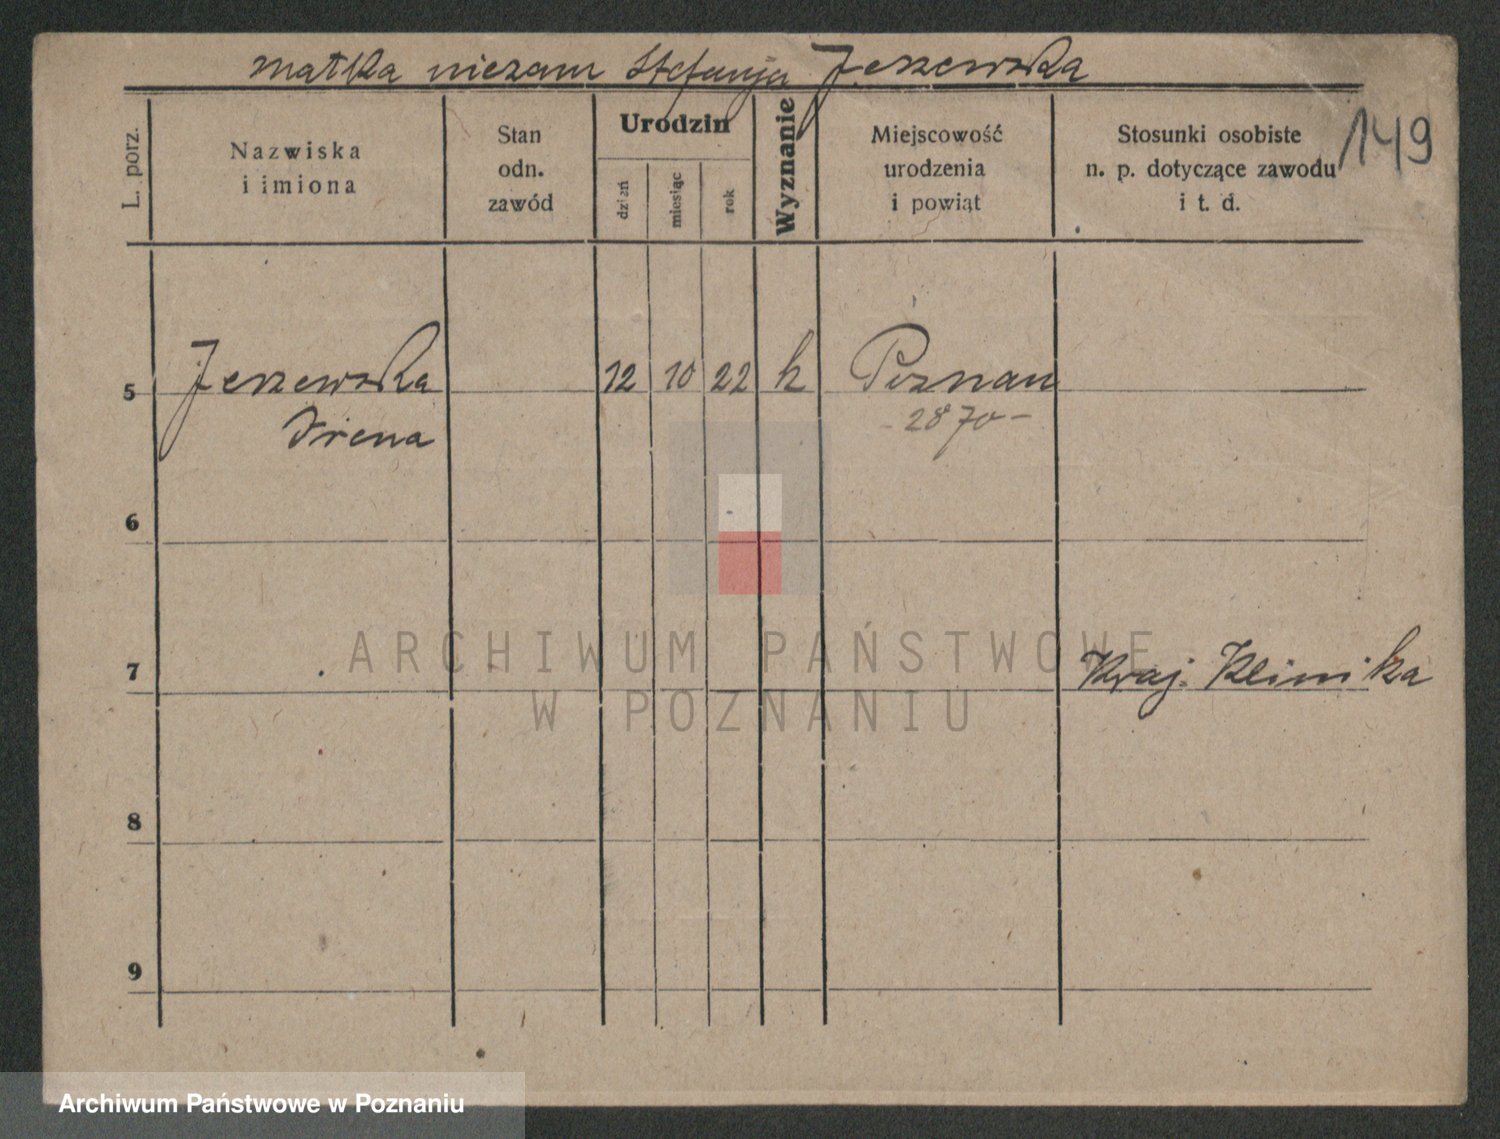 matka niezam Stefanja Jeszewska
149
L. porz.
Nazwiska
i imiona
Stan
odn.
zawód
Urodzin
dzień
miesiąc
rok
Wyznanie
Miejscowość
urodzenia
i powiąt
Stosunki osobiste
n. p. dotyczące zawodu
i t. d.
5 Jeszewska 12 10 22 k Poznan
Irena - 2870 -
6
7 Kraj. Klinika
8
9
ARCHIWUM PAŃSTWOWE
W POZNANIU
Archiwum Państwowe w Poznaniu